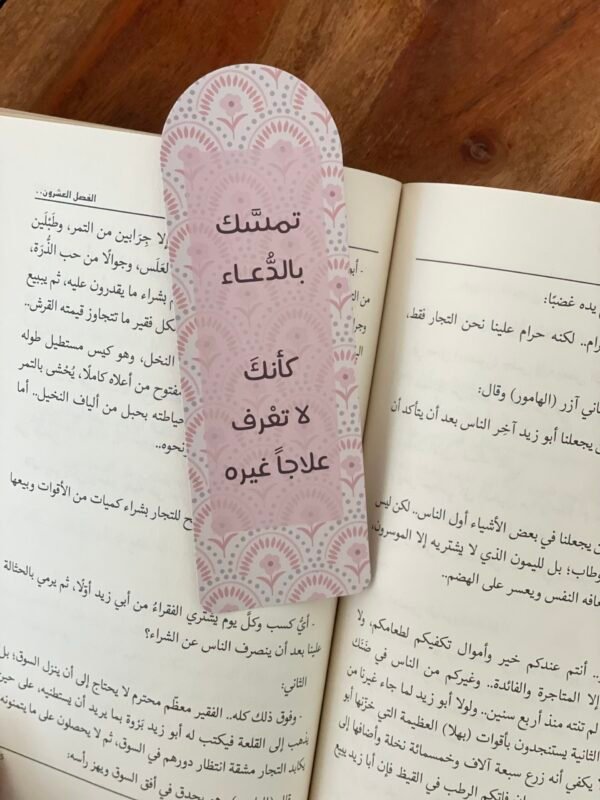 تمسَّك
بالدُّعـاء
كأنكَ
لا تعْرف
علاجاً غيره
الفصل العشرون..
إلا جِرَابين من التمر، وطَبَلَين
العَلَس، وجوالًا من حب الذُّرَة،
بشراء ما يقدرون عليه، ثم يبيع
كل فقير ما تتجاوز قيمته القرش..
النخل، وهو كيس مستطيل طوله
مفتوح من أعلاه كاملًا، يُحْشَى بالتمر
خياطته بحبل من ألياف النخيل.. أما
نحوه..
للتجار بشراء كميات من الأقوات وبيعها
- أيُّ كسب وكلَّ يوم يشتري الفقراءُ من أبي زيد أوّلًا، ثم يرمي بالحثالة
علينا بعد أن ينصرف الناس عن الشراء؟
الثاني:
- وفوق ذلك كله.. الفقير معظّم محترم لا يحتاج إلى أن ينزل السوق؛ بل
يذهب إلى القلعة فيكتب له أبو زيد بَرْوة بما يريد أن يستطنيه، على حين
يكابد التجار مشقة انتظار دورهم في السوق، ثم لا يحصلون على ما يتمنونه
وهو يحدق في أفق السوق ويهز رأسه:
يده غضبًا:
رام.. لكنه حرام علينا نحن التجار فقط،
آزر (الهامور) وقال:
يجعلنا أبو زيد آخِر الناس بعد أن يتأكد أن
يجعلنا في بعض الأشياء أول الناس.. لكن ليس
وطاب؛ بل لليمون الذي لا يشتريه إلا الموسرون،
تعافه النفس ويعسر على الهضم..
أنتم عندكم خير وأموال تكفيكم لطعامكم، ولا
إلا المتاجرة والفائدة.. وغيركم من الناس في ضَنَك
لم تنته منذ أربع سنين.. ولولا أبو زيد لما جاء غيرنا من
الثانية يستنجدون بأقوات (بهلا) العظيمة التي خزنها أبو
يكفي أنه زرع سبعة آلاف وخمسمائة نخلة وأضافها إلى
فاتكم الرطب في القيظ فإن أبا زيد يبيع